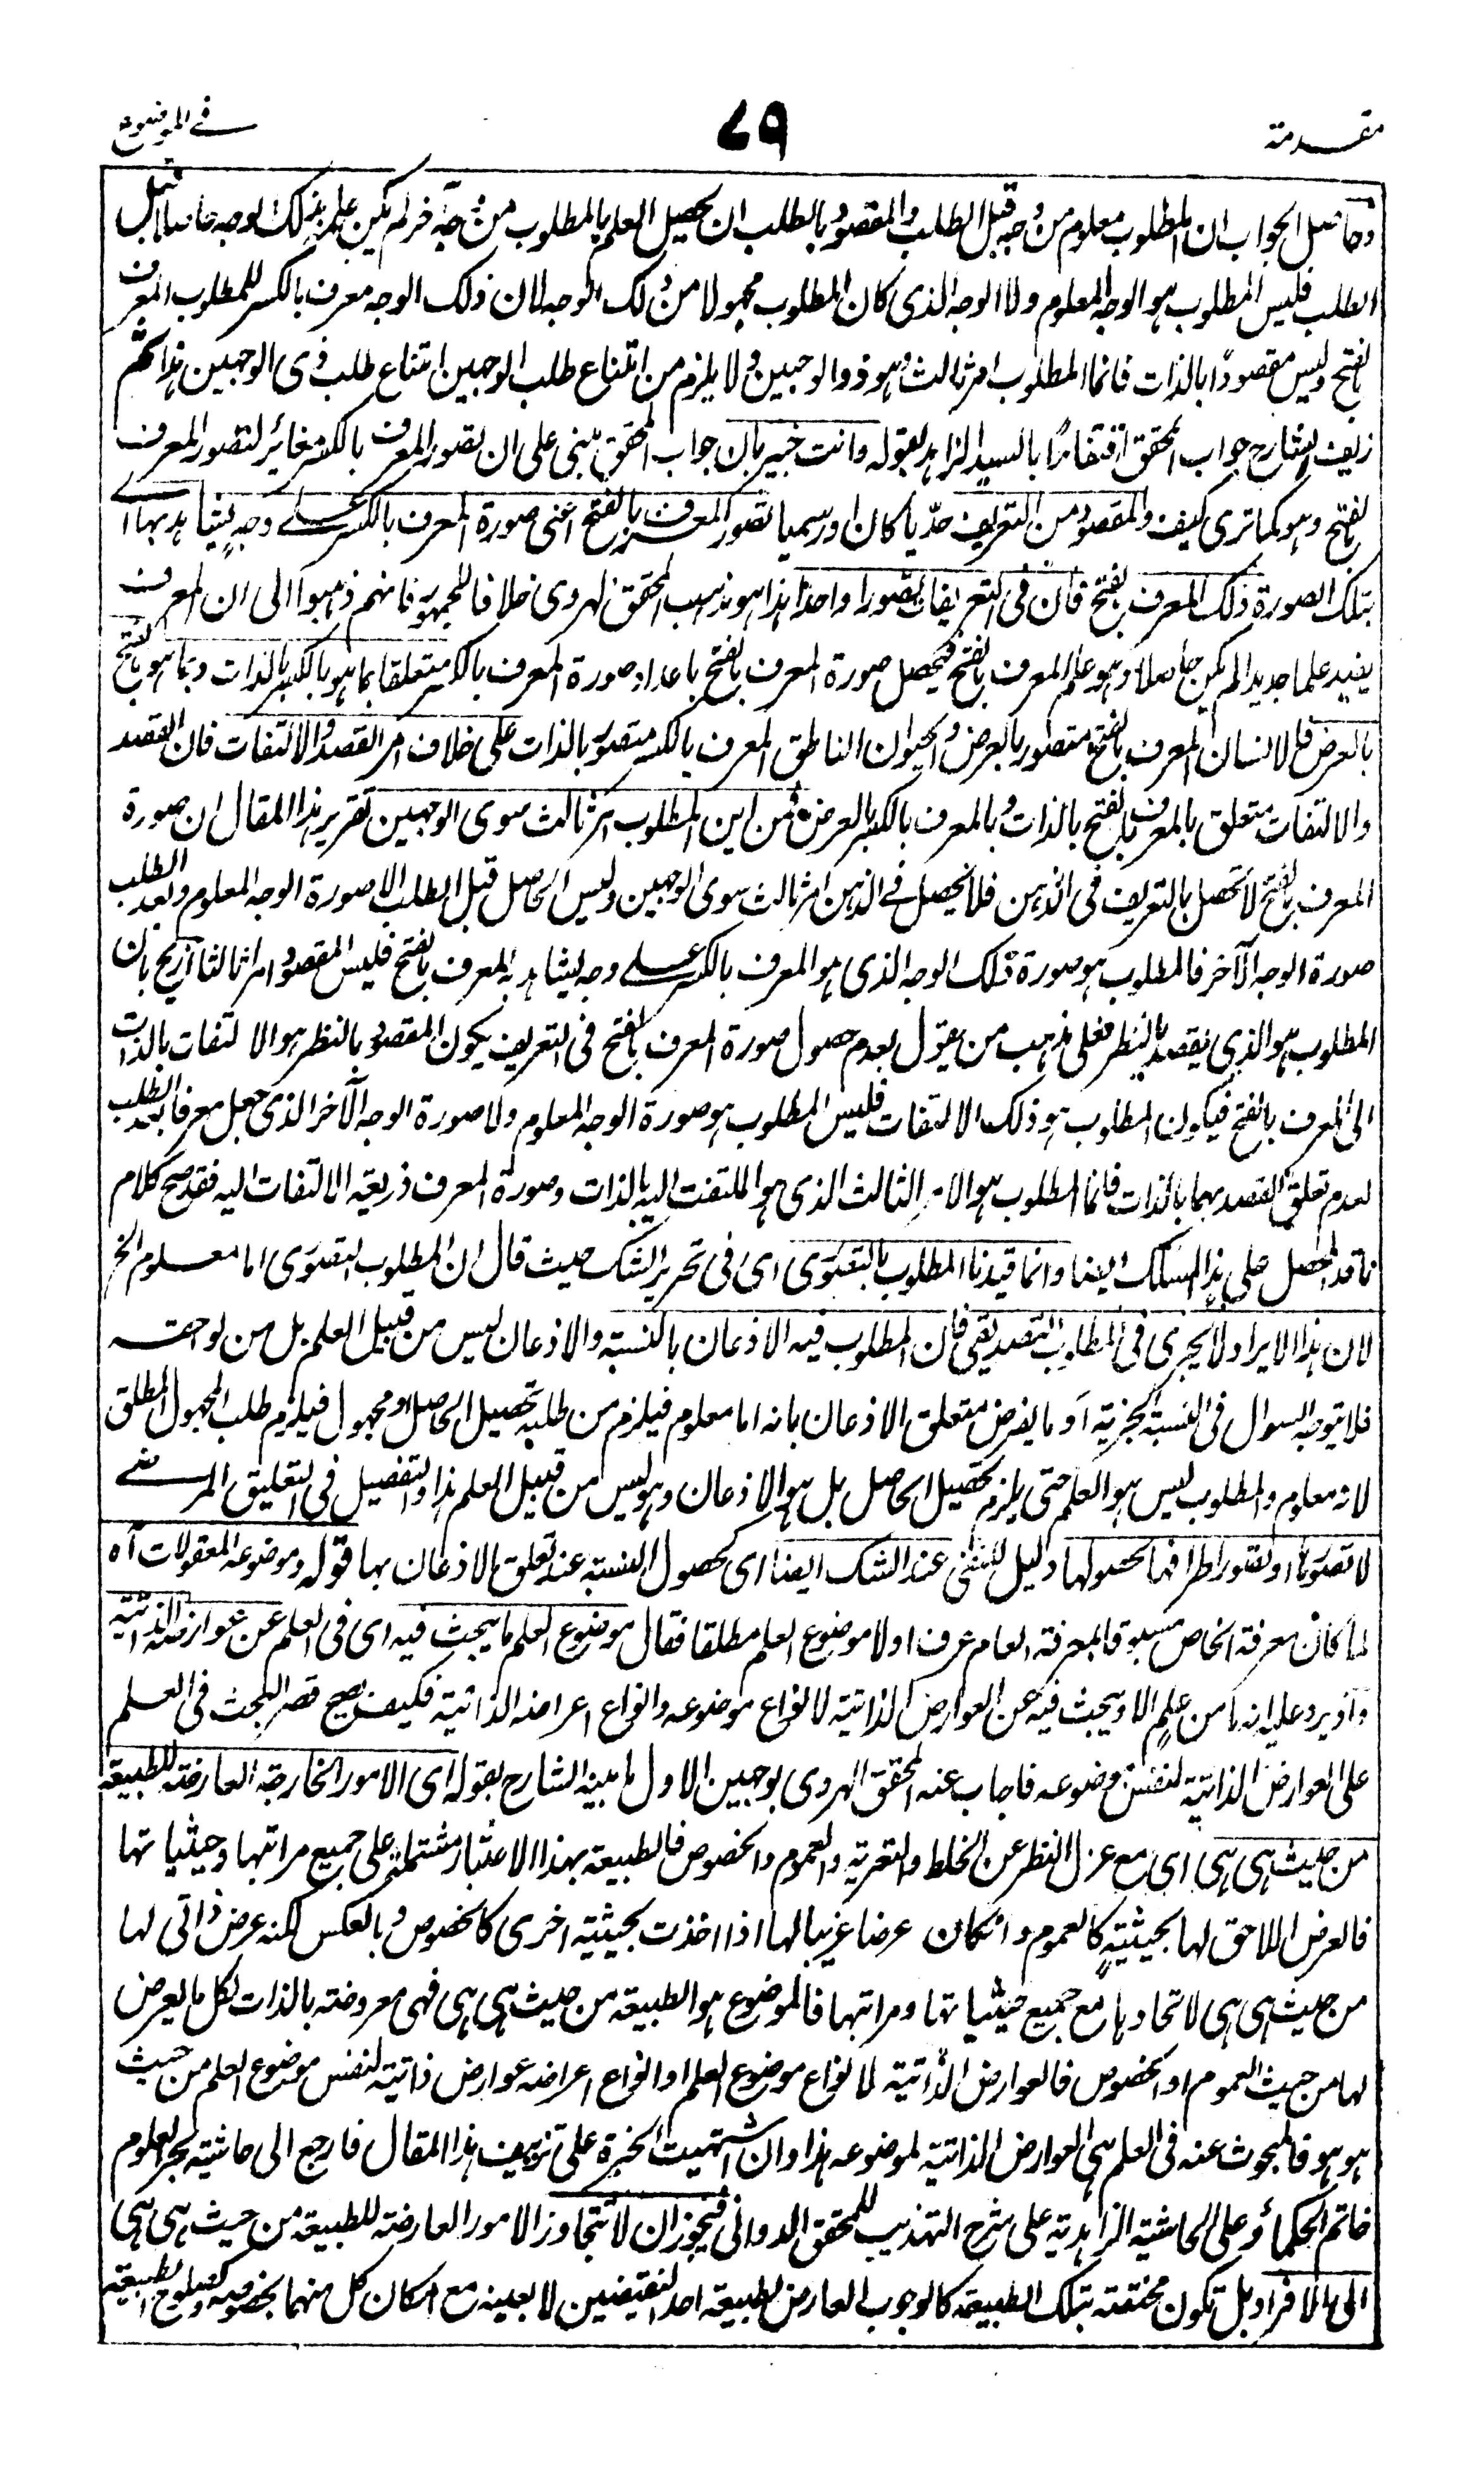 مقدمة
٧٩
في الموضوع
وحاصل الجواب ان المطلوب معلوم من وجه قبل الطلب والمقصود بالطلب ان يحصيل العلم بالمطلوب من وجه آخر لم يكن علمه بذلك الوجه حاصلا قبل
الطلب فليس المطلوب هو الوجه المعلوم ولا الوجه الذى كان المطلوب مجهولا من ذلك الوجه لان ذلك الوجه معرف بالكسر للمطلوب المعرف
بالفتح وليس مقصودًا بالذات فانما المطلوب امر ثالث وهو ذو الوجهين ولا يلزم من امتناع طلب الوجهين امتناع طلب ذى الوجهين هذا ثم
زيف الشارح جواب المحقق اقتفارًا بالسيد الزاهد بقوله وانت خبير بان جواب المحقق مبنى على ان تصور المعرف بالكسر مغائر لتصور المعرف
بالفتح وهو كما ترى كيف والمقصود من التعريف حدّيا كان او رسميا تصور المعرف بالفتح اعنى صورة المعرف بالكسر على وجهٍ يشاهد بها اى
بتلك الصورة ذلك المعرف بالفتح فان فى التعريفات تصورا واحدًا هذا هو مذهب المحقق الهروى خلافا للجمهور فانهم ذهبوا الى ان المعرف
يفيد علما جديدا لم يكن حاصلا وهو علم المعرف بالفتح فيحصل صورة المعرف بالفتح باعداد صورة المعرف بالكسر متعلقا بما هو بالكسر بالذات وبما هو بالفتح
بالعرض فالانسان المعرف بالفتح متصور بالعرض والحيوان الناطق المعرف بالكسر متصور بالذات على خلاف امر القصد والالتفات فان القصد
والالتفات متعلق بالمعرف بالفتح بالذات وبالمعرف بالكسر بالعرض فمن اين المطلوب امر ثالث سوى الوجهين تقرير هذا المقال ان صورة
المعرف بالفتح لا تحصل بالتعريف فى الذهن فلا يحصل فى الذهن امر ثالث سوى الوجهين وليس الحاصل قبل الطلب الا صورة الوجه المعلوم وبعد الطلب
صورة الوجه الآخر فالمطلوب هو صورة ذلك الوجه الذى هو المعرف بالكسر على وجه يشاهد به المعرف بالفتح فليس المقصود امرا ثالثا ازيح بان
المطلوب هو الذى يقصد بالنظر فعلى مذهب من يقول بعدم حصول صورة المعرف بالفتح فى التعريف يكون المقصود بالنظر هو الالتفات بالذات
الى المعرف بالفتح فيكون المطلوب هو ذلك الالتفات فليس المطلوب هو صورة الوجه المعلوم ولا صورة الوجه الآخر الذى جعل معرفا بعد الطلب
لعدم تعلق القصد بهما بالذات فانما المطلوب هو الامر الثالث الذى هو الملتفت اليه بالذات وصورة المعرف ذريعة الالتفات اليه فقد صح كلام
ناقد المحصل على هذا المسلك ايضا وانما قيدنا المطلوب بالتصورى اى فى تحرير الشك حيث قال ان المطلوب التصورى اما معلوم الخ
لان هذا الايراد لا يجرى فى المطلوب التصديقى فان المطلوب فيه الاذعان بالنسبة والاذعان ليس من قبيل العلم بل من لواحقه
فلا يتوجه السوال فى النسبة الخبرية او ما يفرض متعلق الاذعان بانه اما معلوم فيلزم من طلبه تحصيل الحاصل او مجهول فيلزم طلب المجهول المطلق
لانه معلوم والمطلوب ليس هو العلم حتى يلزم تحصيل الحاصل بل هو الاذعان وهو ليس من قبيل العلم هذا والتفصيل فى التعليق المرضى
لا تصورها او تصور اطرافها لحصولها دليل للنفى عند الشك ايضا اى لحصول النسبة عند تعلق الاذعان بها قوله وموضوعه المعقولات آه
لما كان معرفة الخاص مسبوقا بمعرفة العام عرف اولا موضوع العلم مطلقا فقال موضوع العلم ما يبحث فيه اى فى العلم عن عوارضه الذاتية
واذ يرد عليه انه ما من علمٍ الا ويبحث فيه عن العوارض الذاتية لانواع موضوعه وانواع اعراضه الذاتية فكيف يصح قصر البحث فى العلم
على العوارض الذاتية لنفس موضوعه فاجاب عنه المحقق الهروى بوجهين الاول ما بينه الشارح بقوله اى الامور الخارجة العارضة للطبيعة
من حيث هى هى اى مع عزل النظر عن الخلط والتعرية والعموم والخصوص فالطبيعة بهذا الاعتبار مشتملة على جميع مراتبها وحيثياتها
فالعرض اللاحق لها بحيثيةٍ كالعموم وان كان عرضا غريبا لها اذا اخذت بحيثية اخرى كالخصوص وبالعكس لكنه عرض ذاتى لها
من حيث هى هى لاتحادها مع جميع حيثياتها ومراتبها فالموضوع هو الطبيعة من حيث هى هى فهى معروضة بالذات لكل ما يعرض
لها من حيث العموم او الخصوص فالعوارض الذاتية لانواع موضوع العلم او انواع اعراضه عوارض ذاتية لنفس موضوع العلم من حيث
هو هو فالمبحوث عنه فى العلم هى العوارض الذاتية لموضوعه هذا وان اشتهيت الخبرة على تزييف هذا المقال فارجع الى حاشية بحر العلوم
خاتم الحكماء على الحاشية الزاهدية على شرح التهذيب للمحقق الدوانى فيجوز ان لا تتجاوز الامور العارضة للطبيعة من حيث هى هى
الى الافراد بل تكون مختصة بتلك الطبيعة كالوجوب العارض لطبيعة احد النقيضين لا بعينه مع امكان كل منهما بخصوصه وكصلوح الطبيعة